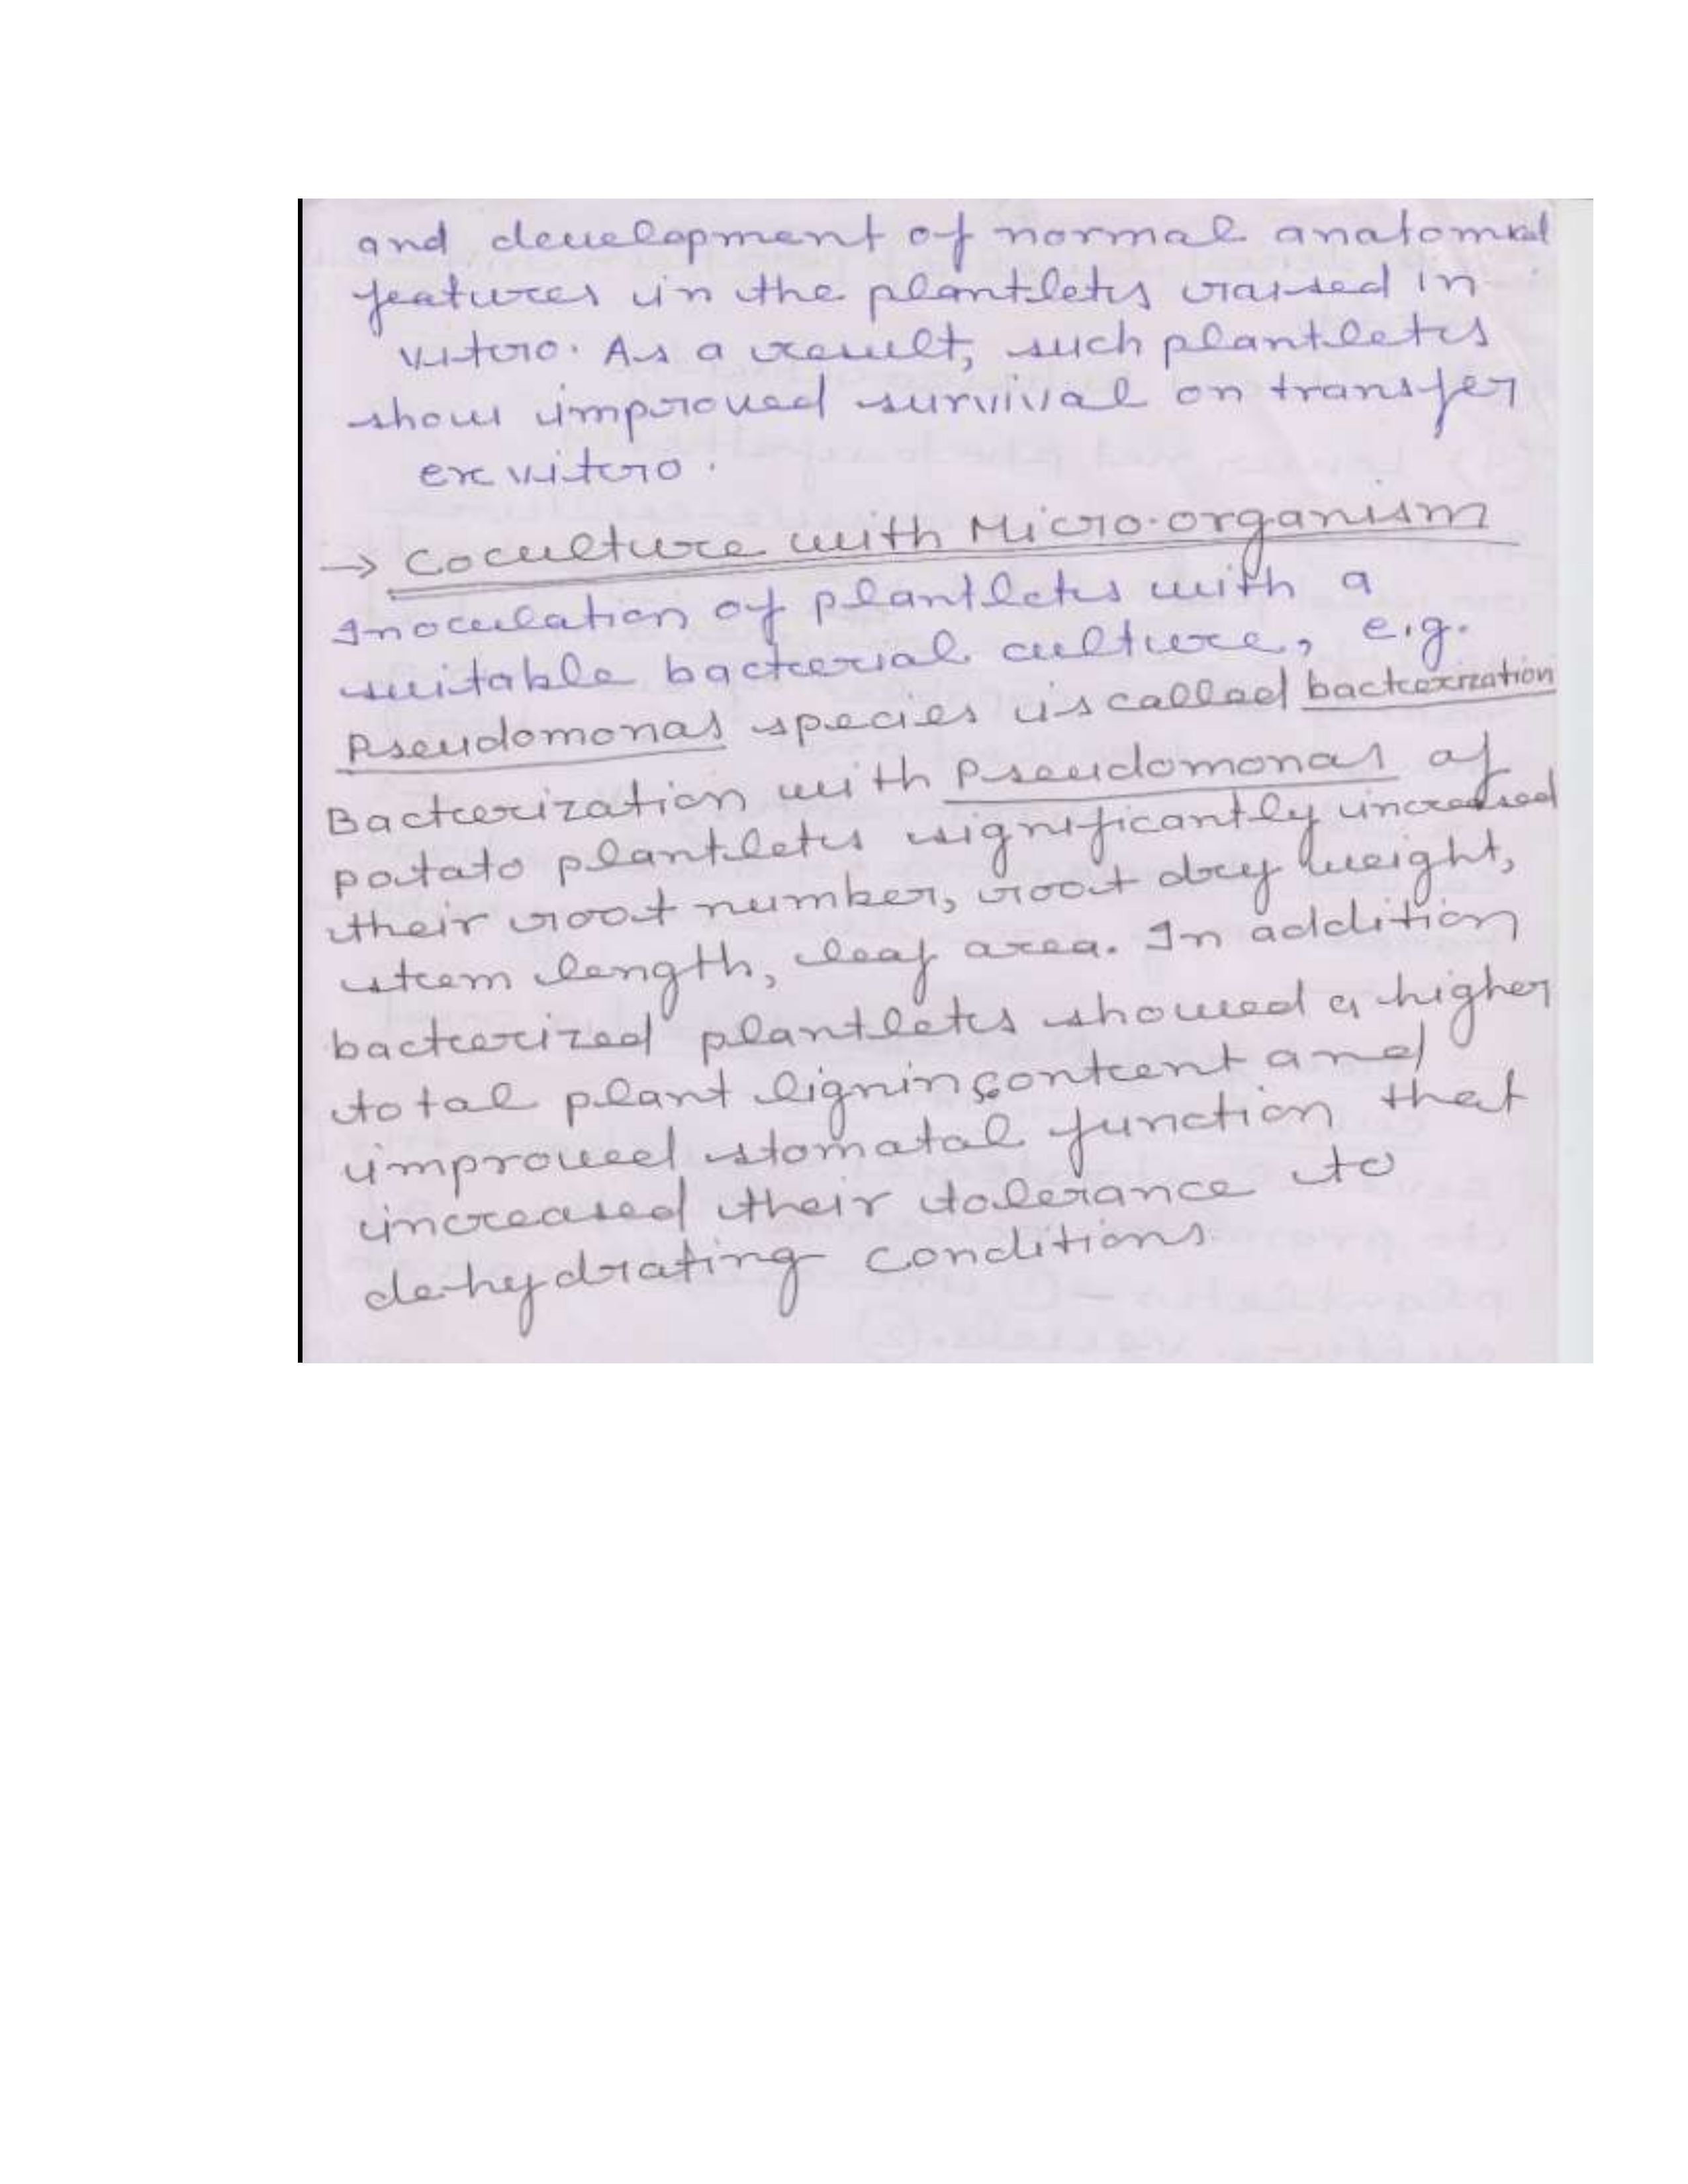 and development of normal anatomical
features in the plantlets raised in
vitro. As a result, such plantlets
show improved survival on transfer
ex vitro.
→ Coculture with Micro-organism
Inoculation of plantlets with a
suitable bacterial culture, e.g.
Pseudomonas species is called bacterization
Bacterization with Pseudomonas of
potato plantlets significantly increased
their root number, root dry weight,
stem length, leaf area. In addition
bacterized plantlets showed a higher
total plant lignin content and
improved stomatal function that
increased their tolerance to
dehydrating conditions.